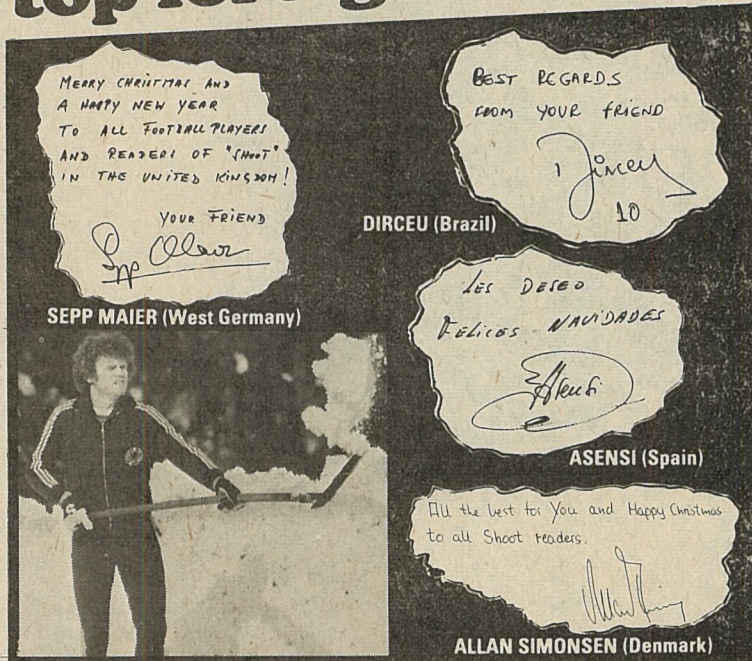 MERRY CHRISTMAS AND
A HAPPY NEW YEAR
TO ALL FOOTBALL PLAYERS
AND READERS OF "SHOOT"
IN THE UNITED KINGDOM!
YOUR FRIEND
Sepp Maier
SEPP MAIER (West Germany)
BEST REGARDS
FROM YOUR FRIEND
Dirceu
10
DIRCEU (Brazil)
LES DESEO
FELICES NAVIDADES
Asensi
ASENSI (Spain)
All the best for You and Happy Christmas
to all Shoot readers.
ALLAN SIMONSEN (Denmark)